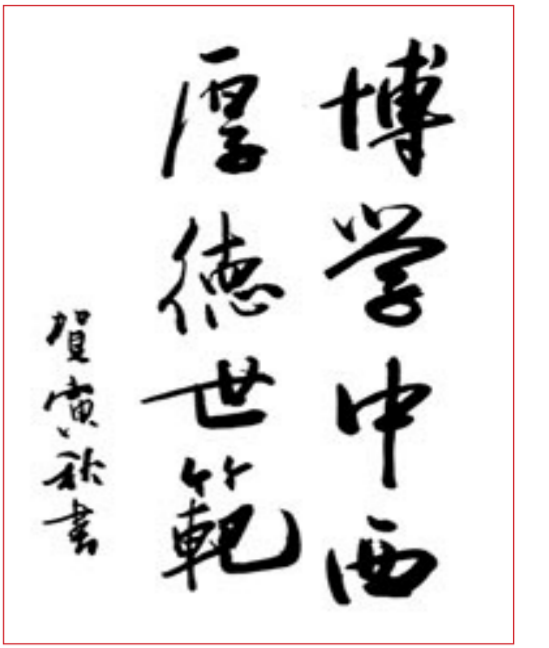 博学中西
厚德世範
贺寅秋書